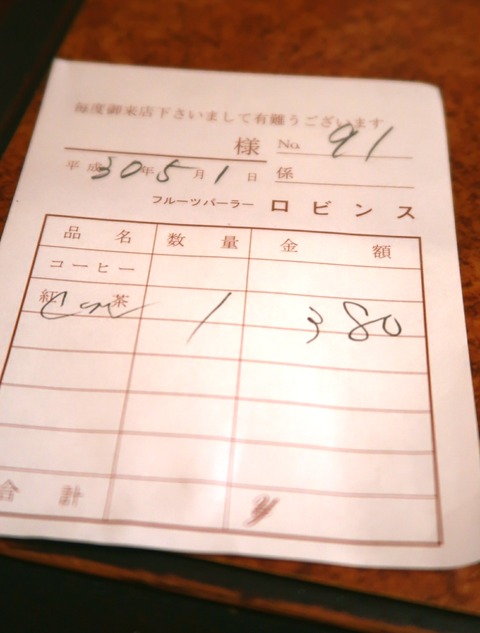 毎度御来店下さいまして有難うございます
様 No. 91
平成30年5月1日 係
フルーツパーラー ロビンス
品名 数量 金額
コーヒー
紅茶 1 380
合計 ¥